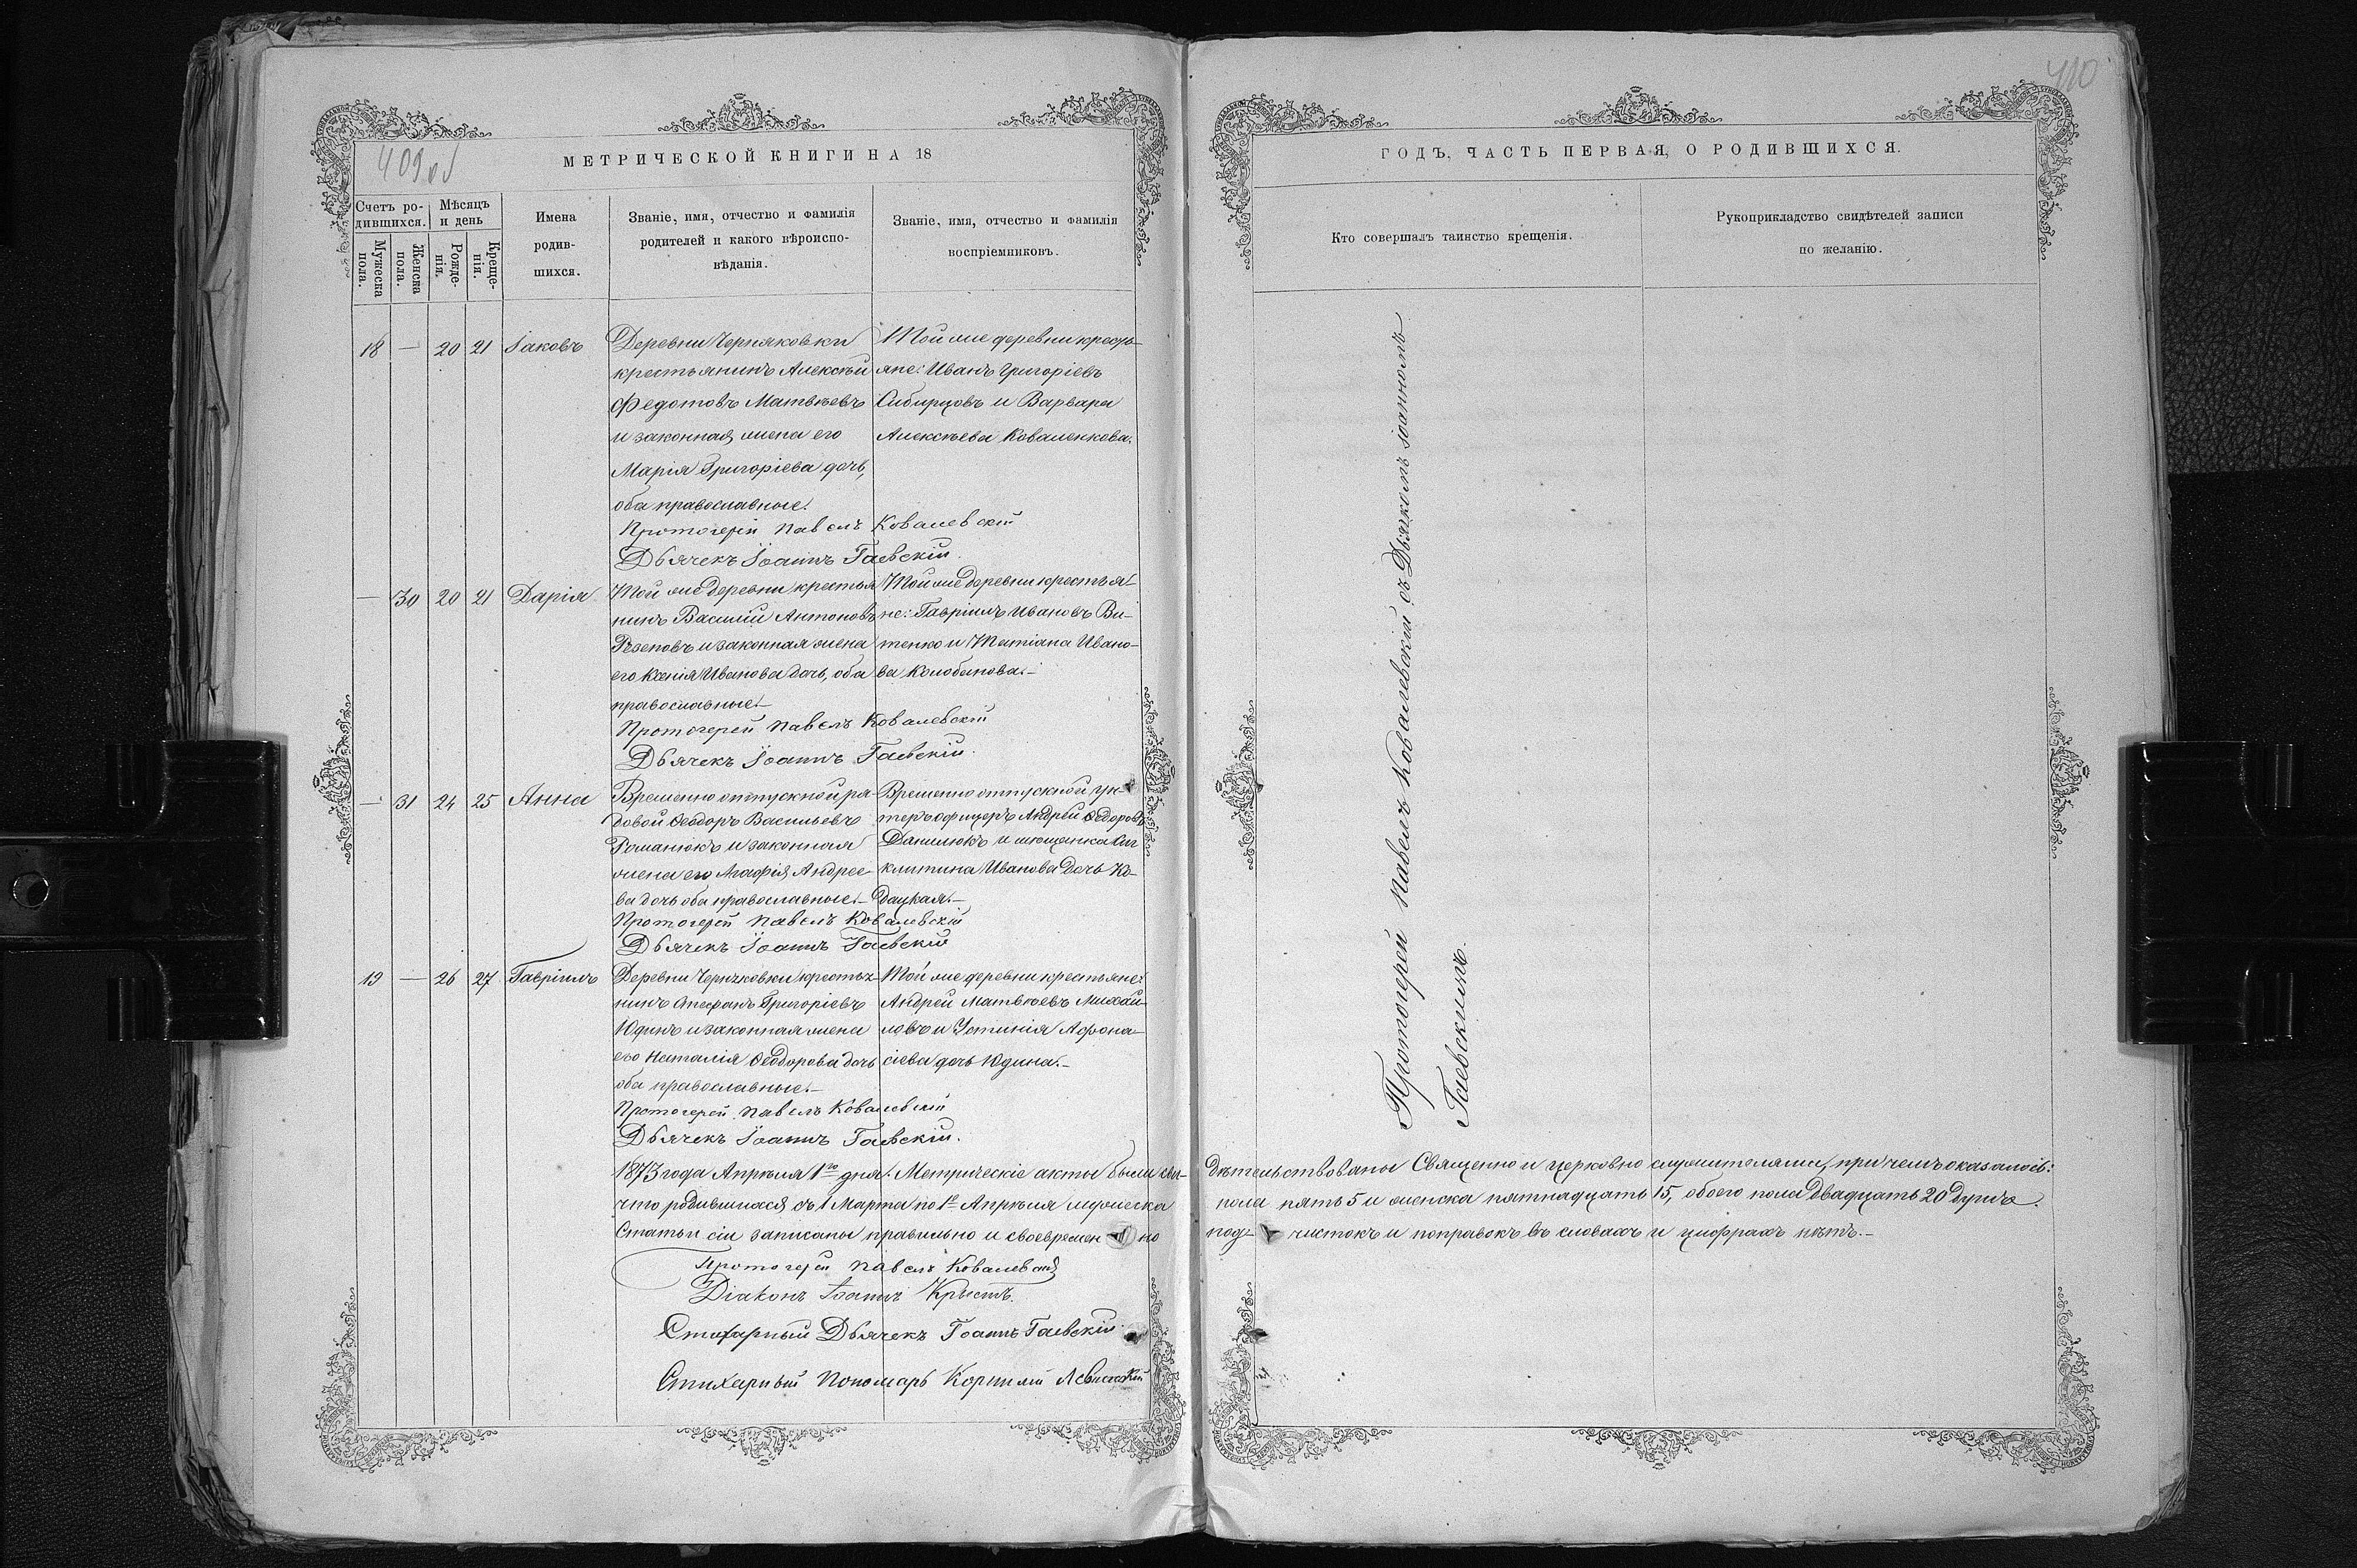 409 об
МЕТРИЧЕСКОЙ КНИГИ НА 18
Счетъ ро-
дившихся.
Мужеска
пола.
Женска
пола.
Мѣсяцъ
и день
Рожде-
нія.
Креще-
нія.
Имена
родив-
шихся.
Званіе, имя, отчество и фамилія
родителей и какого вѣроиспо-
вѣданія.
Званіе, имя, отчество и фамилія
воспріемниковъ.
18 — 20 21 Іаковъ
Деревни Черняковки
крестьянинъ Алексѣй
Федотовъ Матвѣевъ
и законная жена его
Марія Григоріева дочь,
оба православные.
Той же деревни кресть-
яне: Иванъ Григоріевъ
Сибирцовъ и Варвара
Алексѣева Коваленкова.
Протоіерей Павелъ Ковалевскій
Дьячекъ Іоаннъ Гаевскій.
— 30 20 21 Дарія
Той же деревни крестья
нинъ Василій Антоновъ
Рѣзеповъ и законная жена
его Ксенія Иванова дочь, оба
православные.—
Той же деревни крестья-
не: Гавріилъ Ивановъ Ви-
тенко и Татіана Ивано-
ва Колобанова.—
Протоіерей Павелъ Ковалевскій
Дьячекъ Іоаннъ Гаевскій.
— 31 24 25 Анна
Временно отпускной ря-
довой Ѳеодоръ Васильевъ
Романюкъ и законная
жена его Агафія Андрее-
ва дочь оба православные.—
Временно отпускной ун-
теръ офицеръ Андрей Ѳедоровъ
Данилюкъ и мещанка
Иванова дочь Ко-
дацкая.—
Протоіерей Павелъ Ковалевскій
Дьячекъ Іоаннъ Гаевскій
19 — 26 27 Гавріилъ
Деревни Черняковки крестья-
нинъ Стефанъ Григоріевъ
Юдинъ и законная жена
его Наталія Ѳеодорова дочь
оба православные.—
Той же деревни крестьяне:
Андрей Матвѣевъ Михай-
ловъ и Устинія Афона-
сіева дочь Юдина.—
Протоіерей Павелъ Ковалевскій
Дьячекъ Іоаннъ Гаевскій.
1873 года Апрѣля 1го дня. Метрическіе акты были сви-
что родившихся съ 1 Марта по 1е Апрѣля мужеска
Статьи сіи записаны правильно и своевремен но
Протоіерей Павелъ Ковалевскій
Діаконъ Іоаннъ Крыстъ.
Стихарный Дьячекъ Іоаннъ Гаевскій.
Стихарный Пономарь Корнилій
410
ГОДЪ, ЧАСТЬ ПЕРВАЯ, О РОДИВШИХСЯ.
Кто совершалъ таинство крещенія.
Рукоприкладство свидѣтелей записи
по желанію.
Протоіерей Павелъ Ковалевскій съ Дьячкомъ Іоанномъ
Гаевскимъ.
дѣтельствованы Священно и церковно служителями, при чемъ оказалось:
пола пять 5 и женска пятнадцать 15, обоего пола двадцать 20 душъ.
под чистокъ и поправокъ въ словахъ и цифрахъ нѣтъ.—